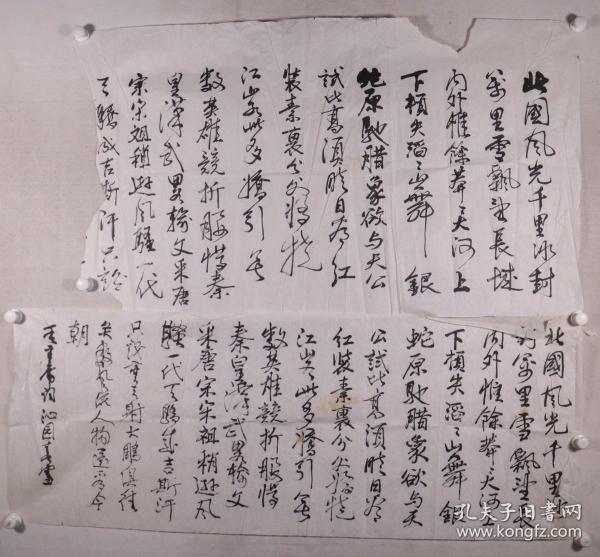 北國風光千里冰封
萬里雪飄望長城
內外惟餘莽〻大河上
下頓失滔〻山舞銀
蛇原馳腊象欲与天公
試比高須晴日看紅
裝素裹分外妖嬈
江山如此多嬌引無
數英雄競折腰惜秦
皇漢武畧輸文采唐
宋宗祖稍遜風騷一代
天驕成吉斯汗只識
北國風光千里冰
封萬里雪飄望長
內外惟餘莽〻大河上
下頓失滔〻山舞銀
蛇原馳腊象欲与天
公試比高須晴日看
紅裝素裹分外妖嬈
江山如此多嬌引無
數英雄競折腰惜
秦皇漢武畧輸文
采唐宋宗祖稍遜風
騷一代天驕成吉斯汗
只識彎弓射大鵰俱往
矣數風流人物還看今
朝
毛主席詞沁園春雪
孔夫子旧书网
kongfz.com